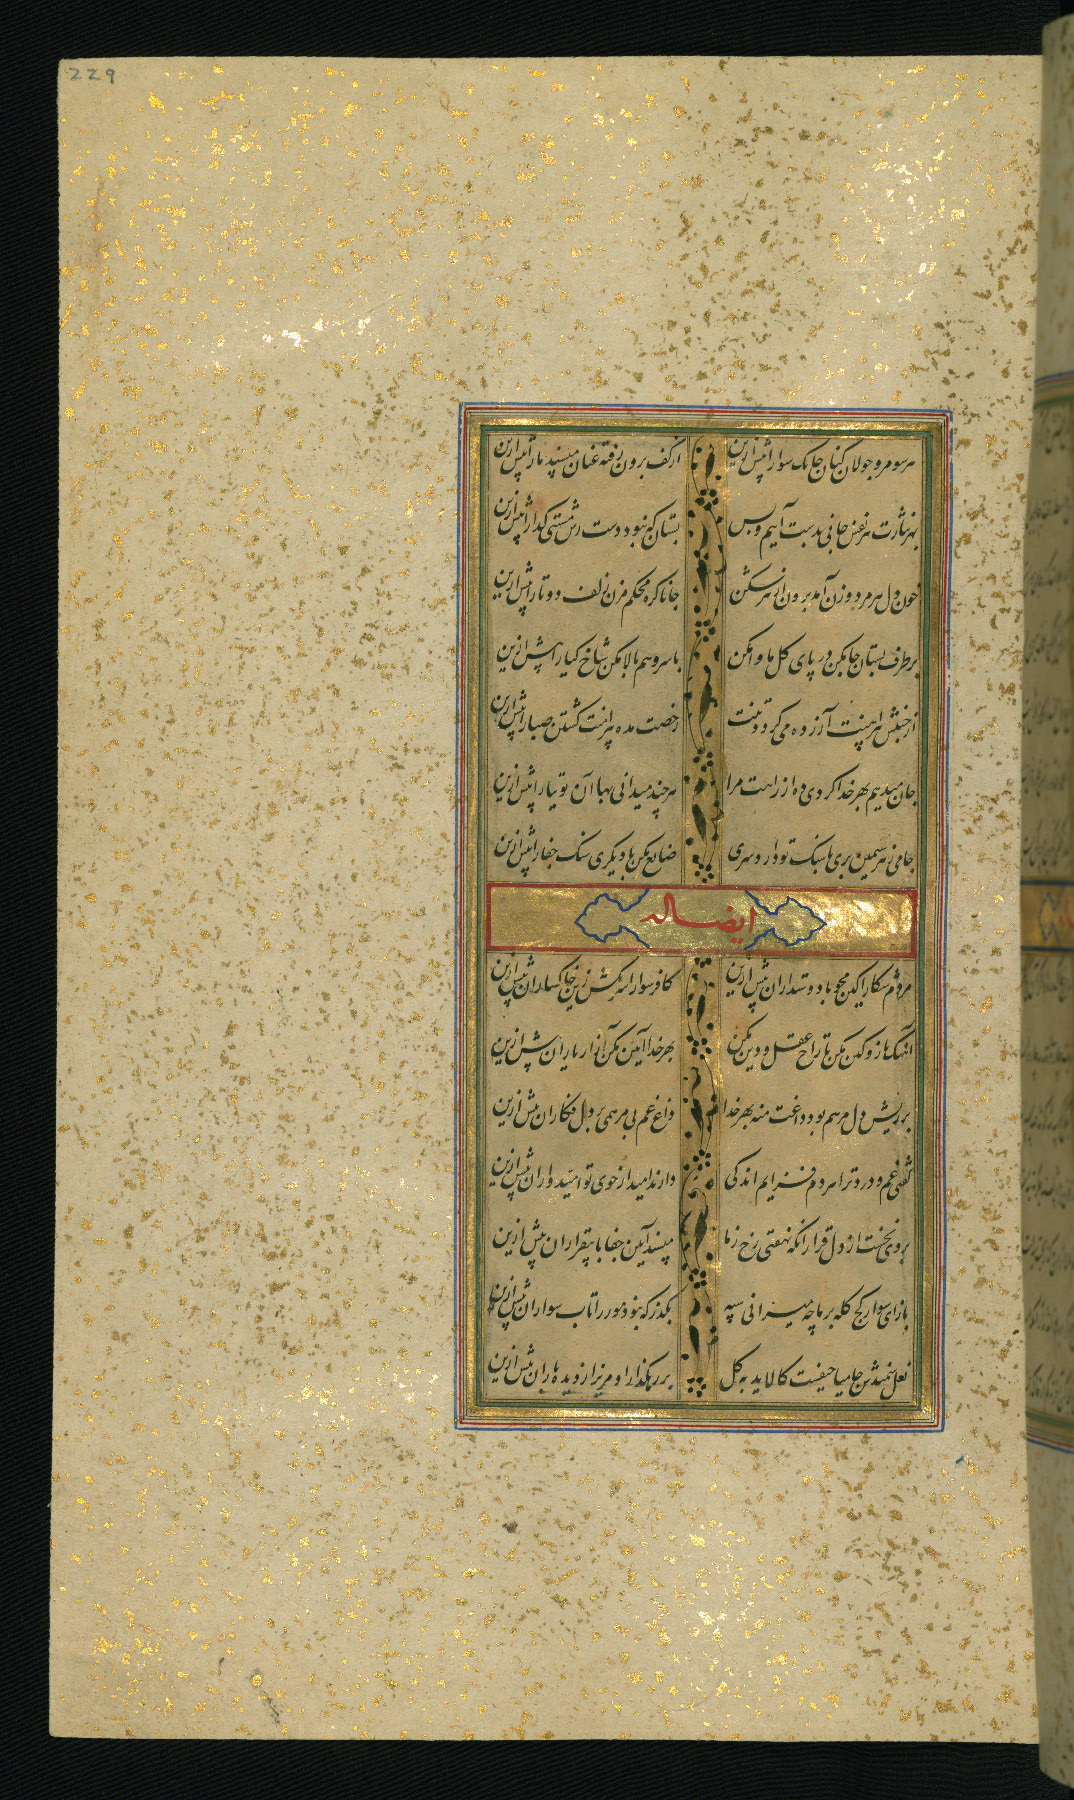 229
هر سو مرو جولان کنان چابک سوارا پیش ازین
از کف برون رفته عنان مپسند ما را پیش ازین
بهر نثارت هر نفس جانی بدست آیم و بس
بستان که نبود دست رس مشتی گدا را پیش ازین
خون دل هر مرد و زن آمد برون از هر شکن
جانا گره محکم مزن زلف دوتا را پیش ازین
بر طرف بستان جا مکن در پای گل ماوا مکن
با سرو هم بالا مکن شاخ گیا را پیش ازین
از جنبش پیراهنت آزرده می گردد تنت
رخصت مده پیرامنت گشتن صبا را پیش ازین
جان میدیم بهر خدا گردی ده از راهت مرا
هر چند میدانی بها آن توتیا را پیش ازین
جامی ز هر سیمین بری با سنگ تو دارد سری
ضایع مکن با دیگری سنگ جفا را پیش ازین
ایضا له
مردم شکارا کین مجو با دوستداران پیش ازین
کافر سوارا سر مکش زین خاکساران پیش ازین
آهنگ ناز و کین مکن تاراج عقل و دین مکن
بهر خدا آیین مکن آزار یاران پیش ازین
بر ریش دل مرهم بود داغت منه بهر خدا
داغ غم بی مرهمی بر دل فکاران پیش ازین
گفتی غم و درد ترا هر دم فزایم اندکی
دارند امید از خوی تو امیدواران پیش ازین
بردی نخست از دل قرار آنگه نهفتی رخ ز ما
مپسند آیین جفا با بیقراران پیش ازین
باز ای سوار کج کله بر ما چه میرانی سپه
بگذر که نبود مور را تاب سواران پیش ازین
نعل سمندش جامیا حیفست کالاید به گل
بر رهگذار او مریز از دیده باران پیش ازین